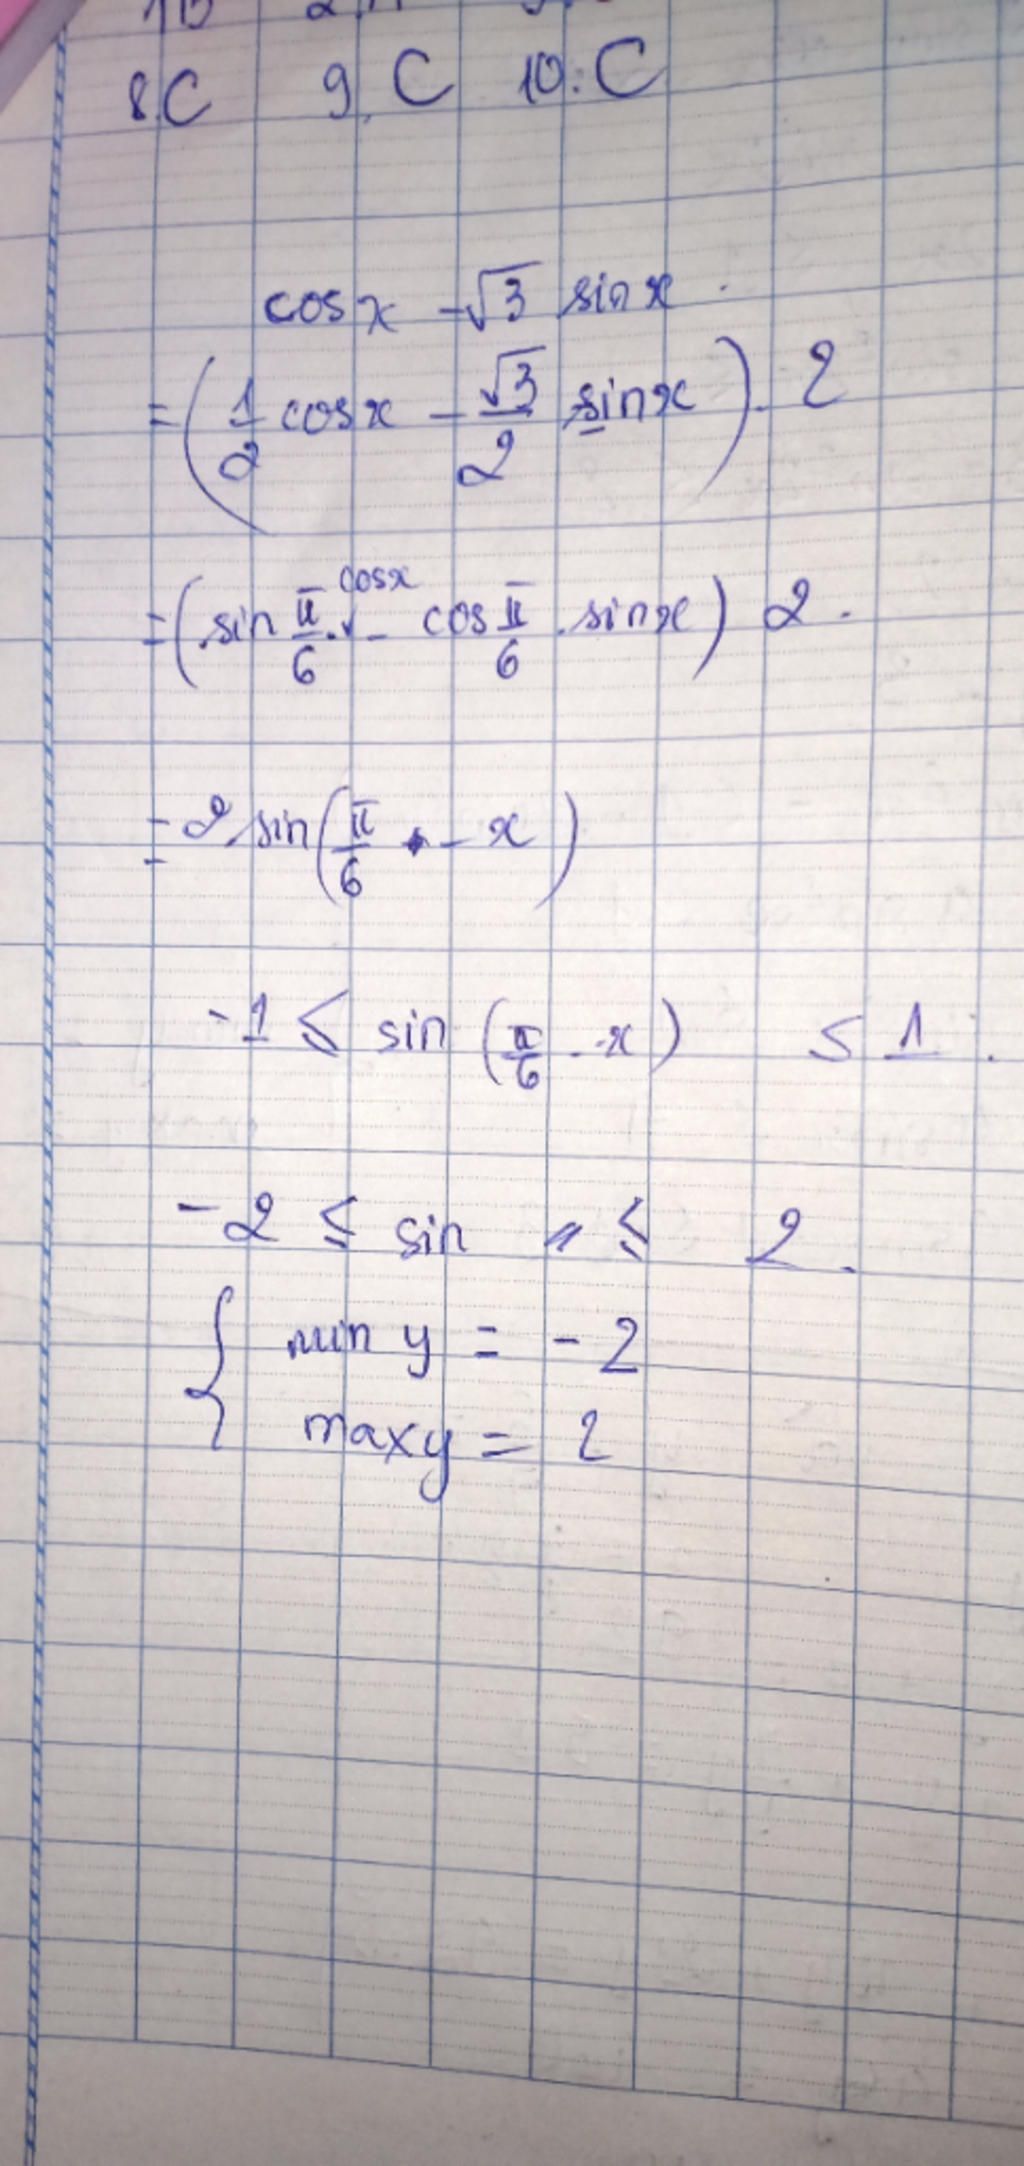 8.C 9. C 10. C
cos x - √3 sin x
= (1/2 cos x - √3/2 sin x). 2
= (sin π/6 . cos x - cos π/6 . sin x) 2.
= 2 sin(π/6 - x)
-1 ≤ sin (π/6 - x) ≤ 1.
-2 ≤ sin " ≤ 2.
{ min y = -2
max y = 2